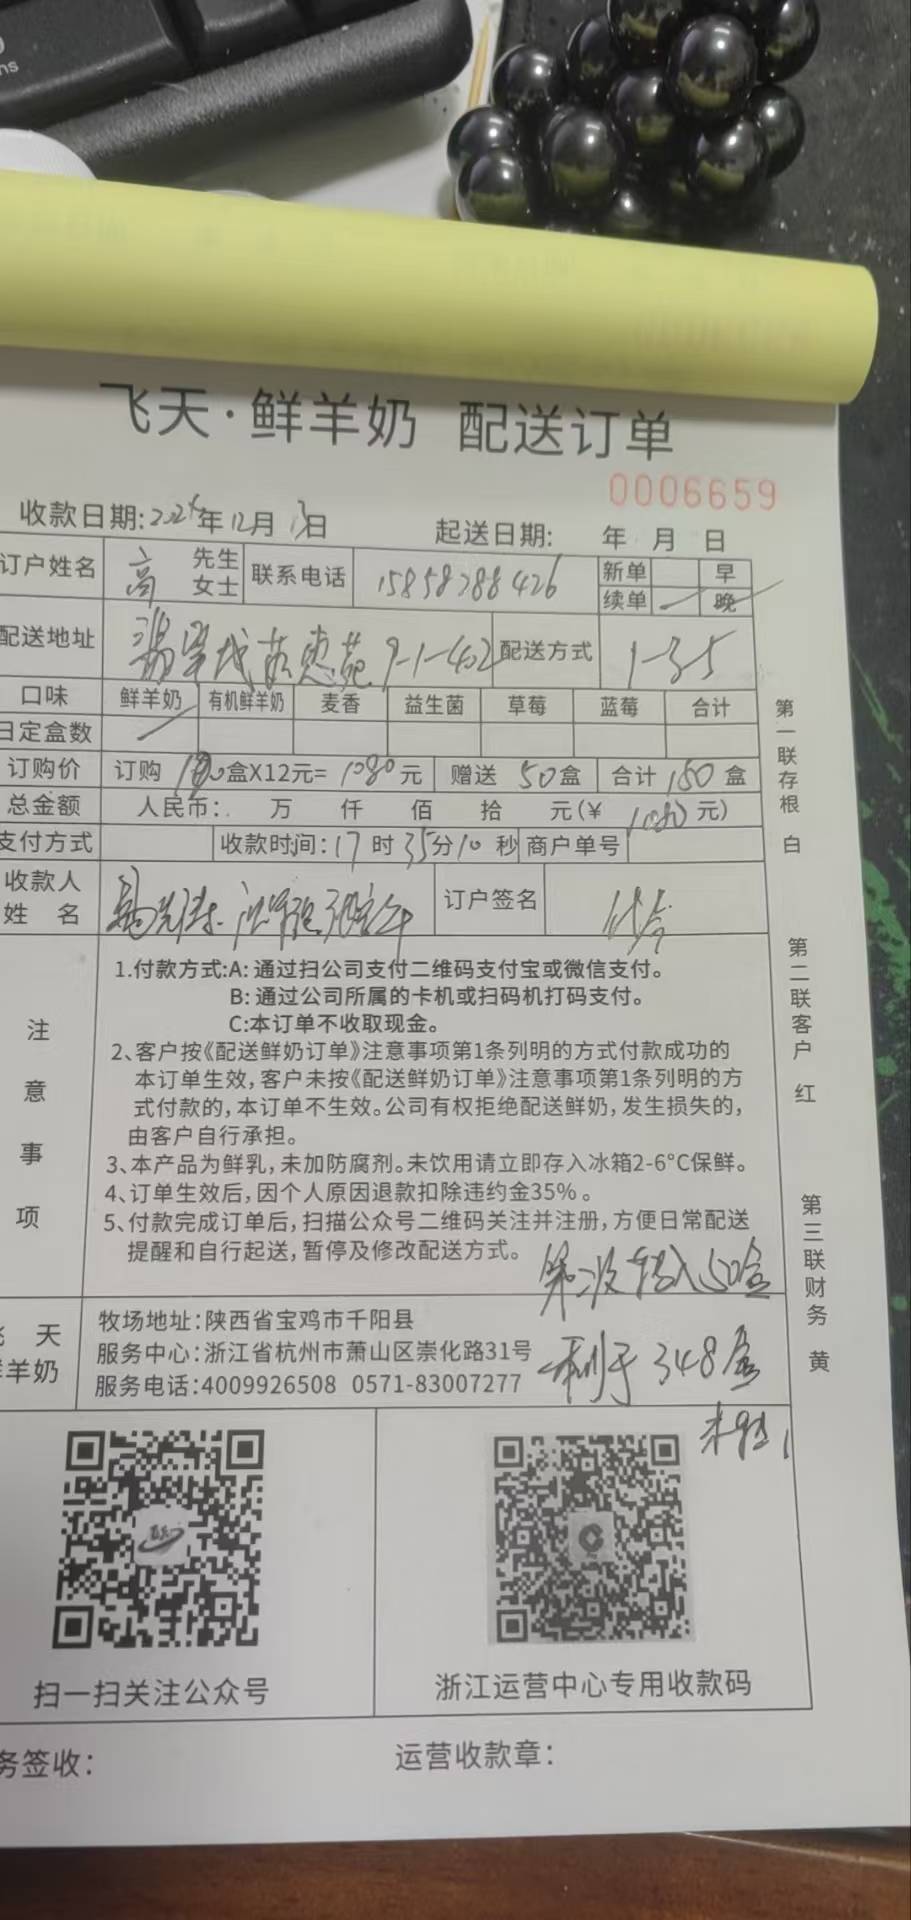 ns
飞天·鲜羊奶 配送订单
0006659
收款日期: 年12月13日 起送日期: 年 月 日
订户姓名 高 先生 女士 联系电话 15858288426 新单 早
续单 晚
配送地址 翡翠城 苑 9-1-402 配送方式 1-3-5
口味 鲜羊奶 有机鲜羊奶 麦香 益生菌 草莓 蓝莓 合计
日定盒数
订购价 订购 盒X12元= 1080元 赠送 50盒 合计 150盒
总金额 人民币: 万 仟 佰 拾 元(¥ 1080元)
支付方式 收款时间: 17时35分10秒 商户单号
收款人姓名 订户签名
注意事项
1.付款方式:A: 通过扫公司支付二维码支付宝或微信支付。
B: 通过公司所属的卡机或扫码机打码支付。
C:本订单不收取现金。
2、客户按《配送鲜奶订单》注意事项第1条列明的方式付款成功的
本订单生效,客户未按《配送鲜奶订单》注意事项第1条列明的方
式付款的,本订单不生效。公司有权拒绝配送鲜奶,发生损失的,
由客户自行承担。
3、本产品为鲜乳,未加防腐剂。未饮用请立即存入冰箱2-6°C保鲜。
4、订单生效后,因个人原因退款扣除违约金35%。
5、付款完成订单后,扫描公众号二维码关注并注册,方便日常配送
提醒和自行起送,暂停及修改配送方式。
第二次转入50盒
剩于348盒
飞天
鲜羊奶
牧场地址:陕西省宝鸡市千阳县
服务中心:浙江省杭州市萧山区崇化路31号
服务电话:4009926508 0571-83007277
扫一扫关注公众号
浙江运营中心专用收款码
务签收:
运营收款章:
第一联存根 白
第二联客户 红
第三联财务 黄